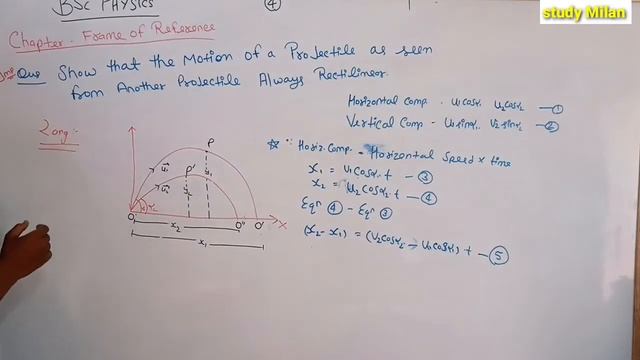 BSc PHYSICS
④
study Milan
Chapter. Frame of Reference
Que Show that the Motion of a Projectile as seen
from Another Projectile Always Rectilinear.
Horizontal Comp. u₁cosα₁ u₂cosα₂ — ①
Vertical Comp - u₁sinα₁. u₂sinα₂ — ②
∵ Horiz. Comp = Horizontal Speed × time
x₁ = u₁cosα₁ t — ③
x₂ = u₂cosα₂ t — ④
Eqⁿ ④ - Eqⁿ ③
(x₂ - x₁) = (u₂cosα₂ - u₁cosα₁) t — ⑤
P
P'
u₁
u₂
y₁
O
O''
O'
X
x₂
x₁